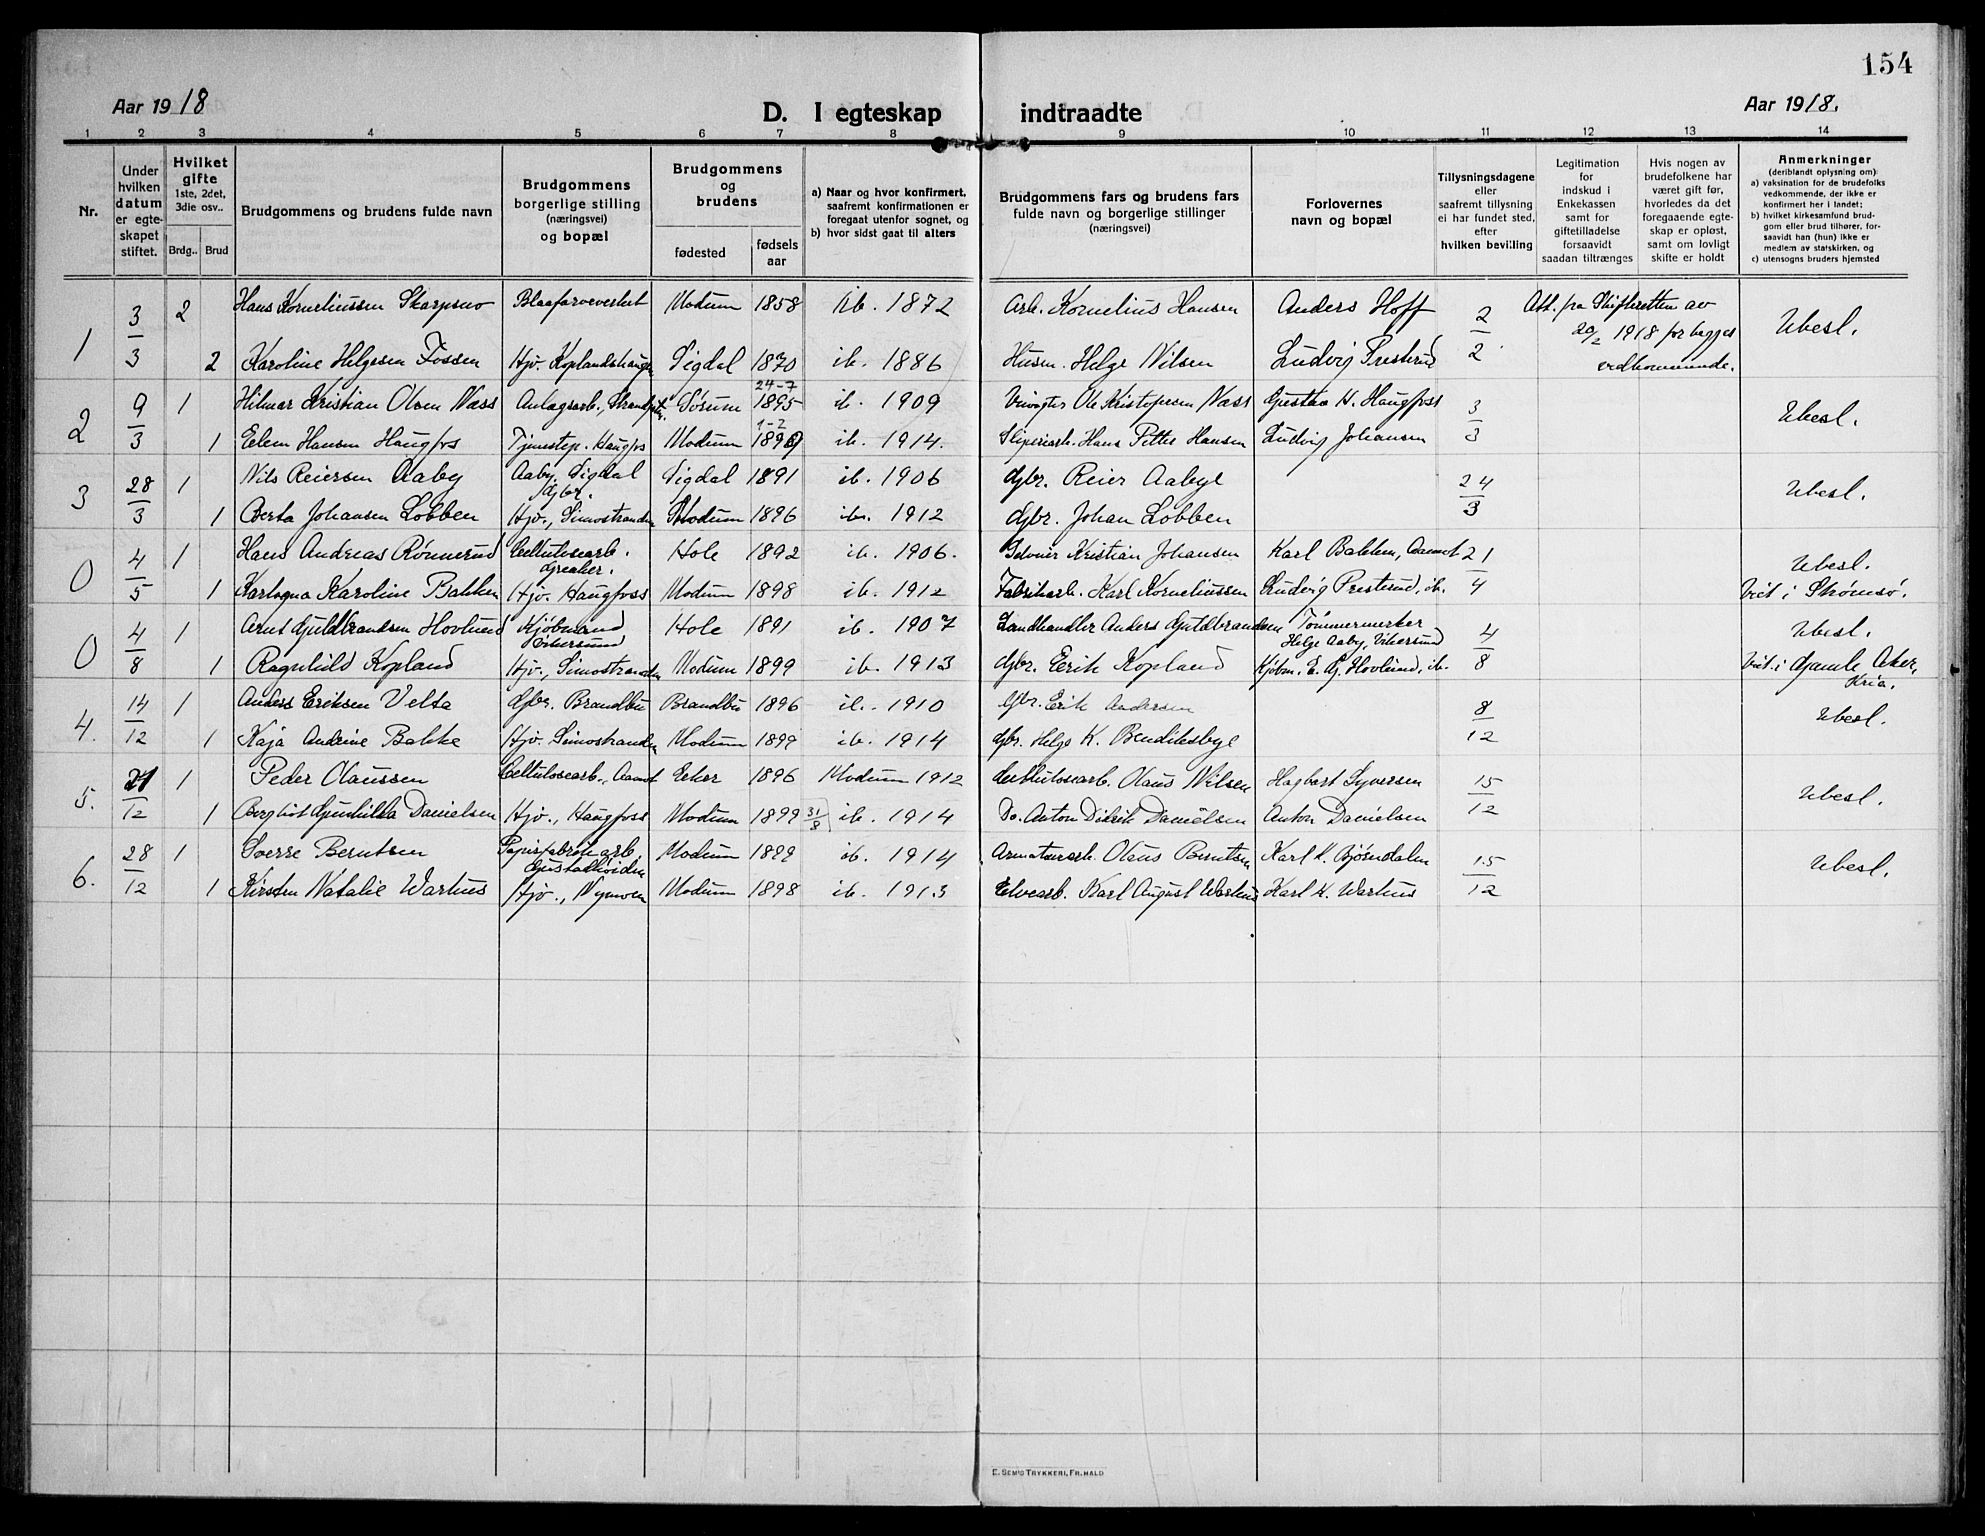 154
Aar 1918
D. I egteskap indtraadte
Aar 1918.
1 2 3 4 5 6 7 8 9 10 11 12 13 14
Nr.
Under hvilken datum er egteskapet stiftet.
Hvilket gifte 1ste, 2det, 3die osv..
Brdg.. Brud
Brudgommens og brudens fulde navn
Brudgommens borgerlige stilling (næringsvei) og bopæl
Brudgommens og brudens
fødested
fødsels aar
a) Naar og hvor konfirmert, saafremt konfirmationen er foregaat utenfor sognet, og
b) hvor sidst gaat til alters
Brudgommens fars og brudens fars fulde navn og borgerlige stillinger (næringsvei)
Forlovernes navn og bopæl
Tillysningsdagene eller saafremt tillysning ei har fundet sted, efter hvilken bevilling
Legitimation for indskud i Enkekassen samt for giftetilladelse forsaavidt saadan tiltrænges
Hvis nogen av brudefolkene har været gift før, hvorledes da det foregaaende egteskap er opløst, samt om lovligt skifte er holdt
Anmerkninger (deriblandt oplysning om):
a) vaksination for de brudefolks vedkommende, der ikke er konfirmert her i landet;
b) hvilket kirkesamfund brudgom eller brud tilhører, forsaavidt han (hun) ikke er medlem av statskirken, og
c) utensogns bruders hjemsted
1 3/3 2 Hans Korneliussen Skarpsno Blaafarveverket Modum 1858 ib. 1872 Arb. Kornelius Hansen Anders Hoff 2/2 Att. fra Skifteretten av 20/2 1918 for begges vedkommende. Ubesl.
2 Karoline Helgesen Fossen Hjv. Koplandshaugen Sigdal 1870 ib. 1886 Husm. Helge Nilsen Ludvig Presterud
2 9/3 1 Hilmar Kristian Olsen Næss Anlagsarb. Sørum 24-7 1895 ib. 1909 Veivogter Ole Kristofersen Næss Gustav H. Haugfoss 3/3 Ubesl.
1 Ellen Hansen Haugfos Tjenestep. Haugfos Modum 1-2 1899 ib. 1914. Sliperiarb. Hans Petter Hansen Ludvig Johansen
3 28/3 1 Nils Reiersen Aaby Aaby, Sigdal Gbr. Sigdal 1891 ib. 1906 Gbr. Reier Aabye 24/3 Ubesl.
1 Berta Johansen Lobben Hjv., Simostranden Modum 1896 ib. 1912 Gbr. Johan Lobben
0 4/5 1 Hans Andreas Rønnerud Cellulosearb. Greaker. Hole 1892 ib. 1906. Kristian Johansen Karl Bakken, Aamot 21/4 Ubesl.
1 Karlagna Karoline Bakken Hjv. Haugfoss Modum 1898 ib. 1912 Fabrikarb. Karl Korneliussen Ludvig Presterud, ib. Viet i Strømsø.
0 4/8 1 Arnt Guldbrandsen Hovlund Kjøbmand Vikersund Hole 1891 ib. 1907 Landhandler Anders Guldbrandsen Tømmermerker Helge Aaby, Vikersund 4/8 Ubesl.
1 Ragnhild Kopland Hjv., Simostranden Modum 1899 ib. 1913 Gbr. Eerik Kopland Kjøbm. E. Ag. Hovlund, ib. Viet i Gamle Aker, Kria.
4. 14/12 1 Anders Eriksen Velta Gbr. Brandbu Brandbu 1896 ib. 1910 Gbr. Erik Andersen 8/12 Ubesl.
1 Kaja Andrine Bakke Hjv. Simostranden Modum 1899 ib. 1914 Gbr. Helge K. Bendiksbye
5. 21/12 1 Peder Olaussen Cellulosearb., Aamot Eeker 1896 Modum 1912 Cellulosearb. Olaus Nilsen Hagbart Syversen 15/12 Ubesl.
1 Bergliot Gunhilda Danielsen Hjv., Haugfoss Modum 1899 31/8 ib. 1914 Do. Anton Didrik Danielsen Anton Danielsen
6. 28/12 1 Sverre Berntsen Papirfabrikarb. Gustadkvidn Modum 1899 ib. 1914 Armaturarb. Olaus Berntsen Karl K. Bjøsndalen 15/12 Ubesl.
1 Kirsten Natalie Wartnes Hjv., Nymoen Modum 1898 ib. 1913 Elvearb. Karl August Wartnes Karl K. Wartnes
E. SEM'S TRYKKERI, FR.HALD